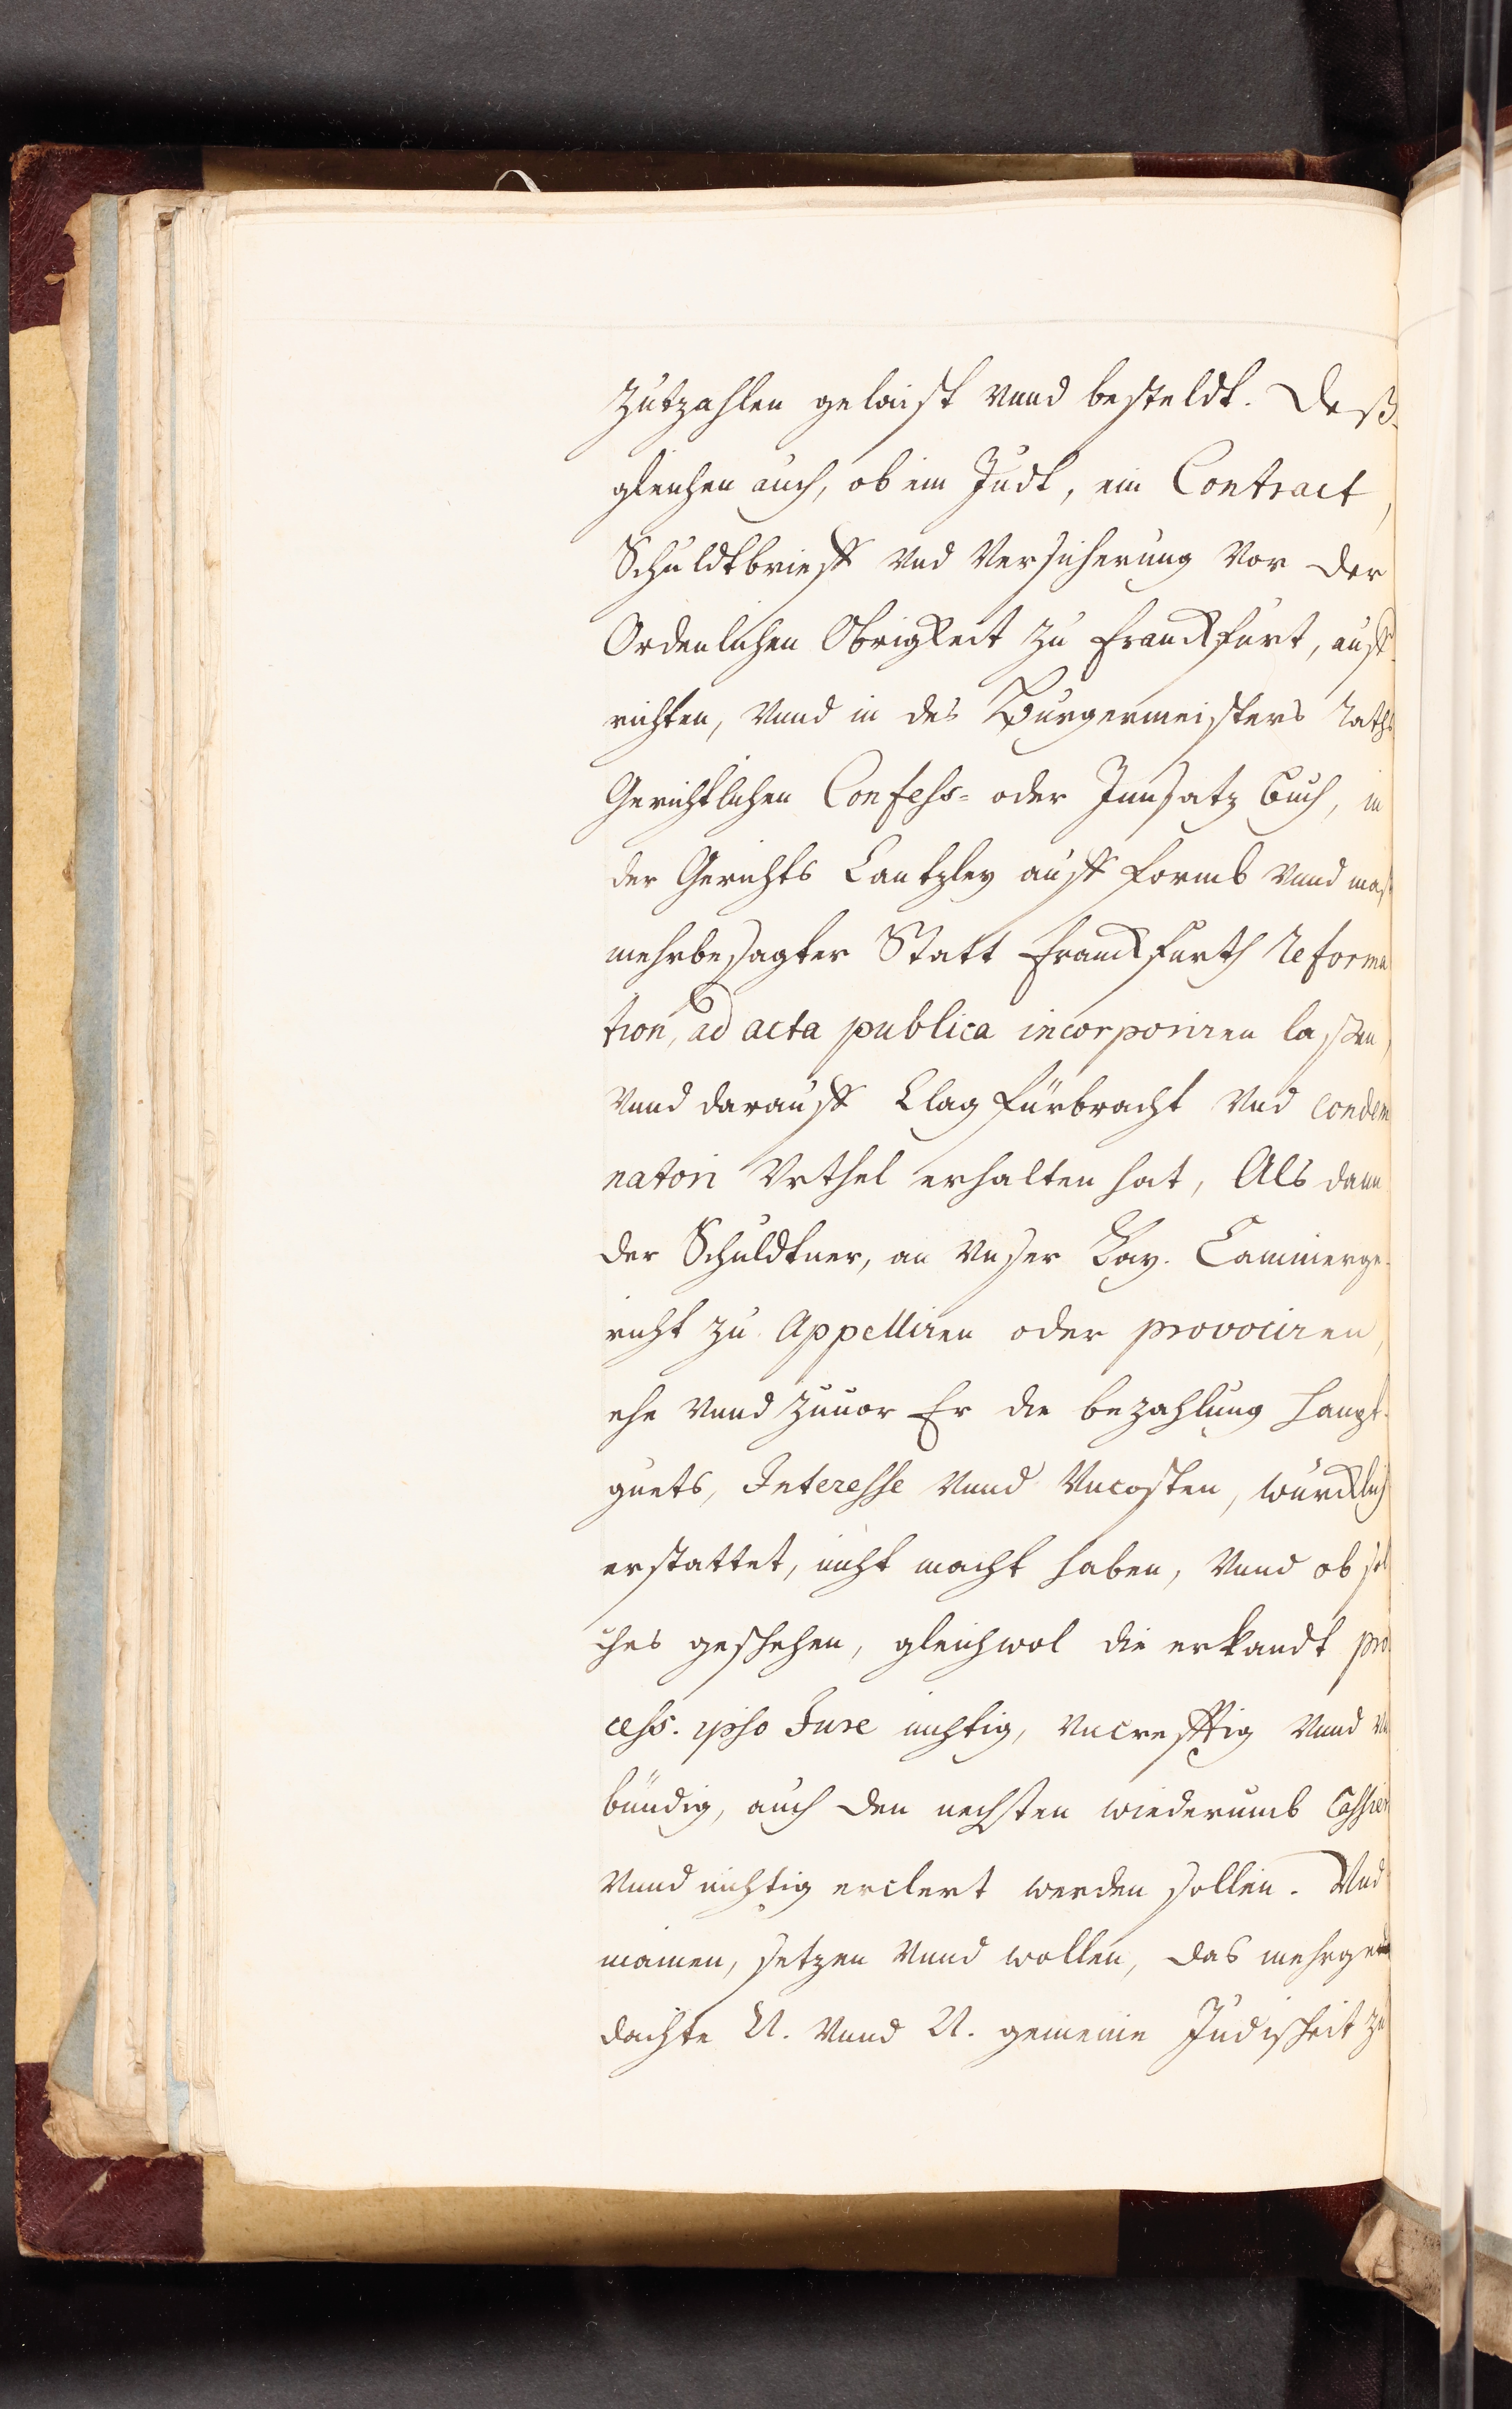 Zutzahlen gelaist vnnd besteldt. Deß-
gleichen auch, ob ein Judt, ein Contract,
Schuldtbrieff vnd Versicherung Vor der
Ordenlichen Obrigkeit zu Franckfurt, auff-
richten, vnnd in des Burgermeisters Raths
Gerichtlichen Confess- oder Innsatz buch, in
der Gerichts Cantzley auff formb vnnd maß
mehrbesagter Statt Franckfurth Reforma
tion, ad acta publica incorporiren lassen,
vnnd darauff Clag fürbracht vnd condem
natori Vrthel erhalten hat, Als dann
der Schuldtner, an vnser Kay. Cammerge-
richt zu Appelliren oder provociren,
ehe vnnd zuuor Er die bezahlung haupt-
guets, Interesse vnnd vncosten, würcklich
erstattet, nicht macht haben, vnnd ob sol
ches geschehen, gleichwol die erkandt pro
cess. ipso Jure nichtig, vncrefftig vnnd vn
bündig, auch den nechsten wiederumb Cassier
vnnd nichtig erclert werden sollen. Vnd
mainen, setzen vnnd wollen, das mehrge
dachte N. vnnd N. gemeine Judischeit zu